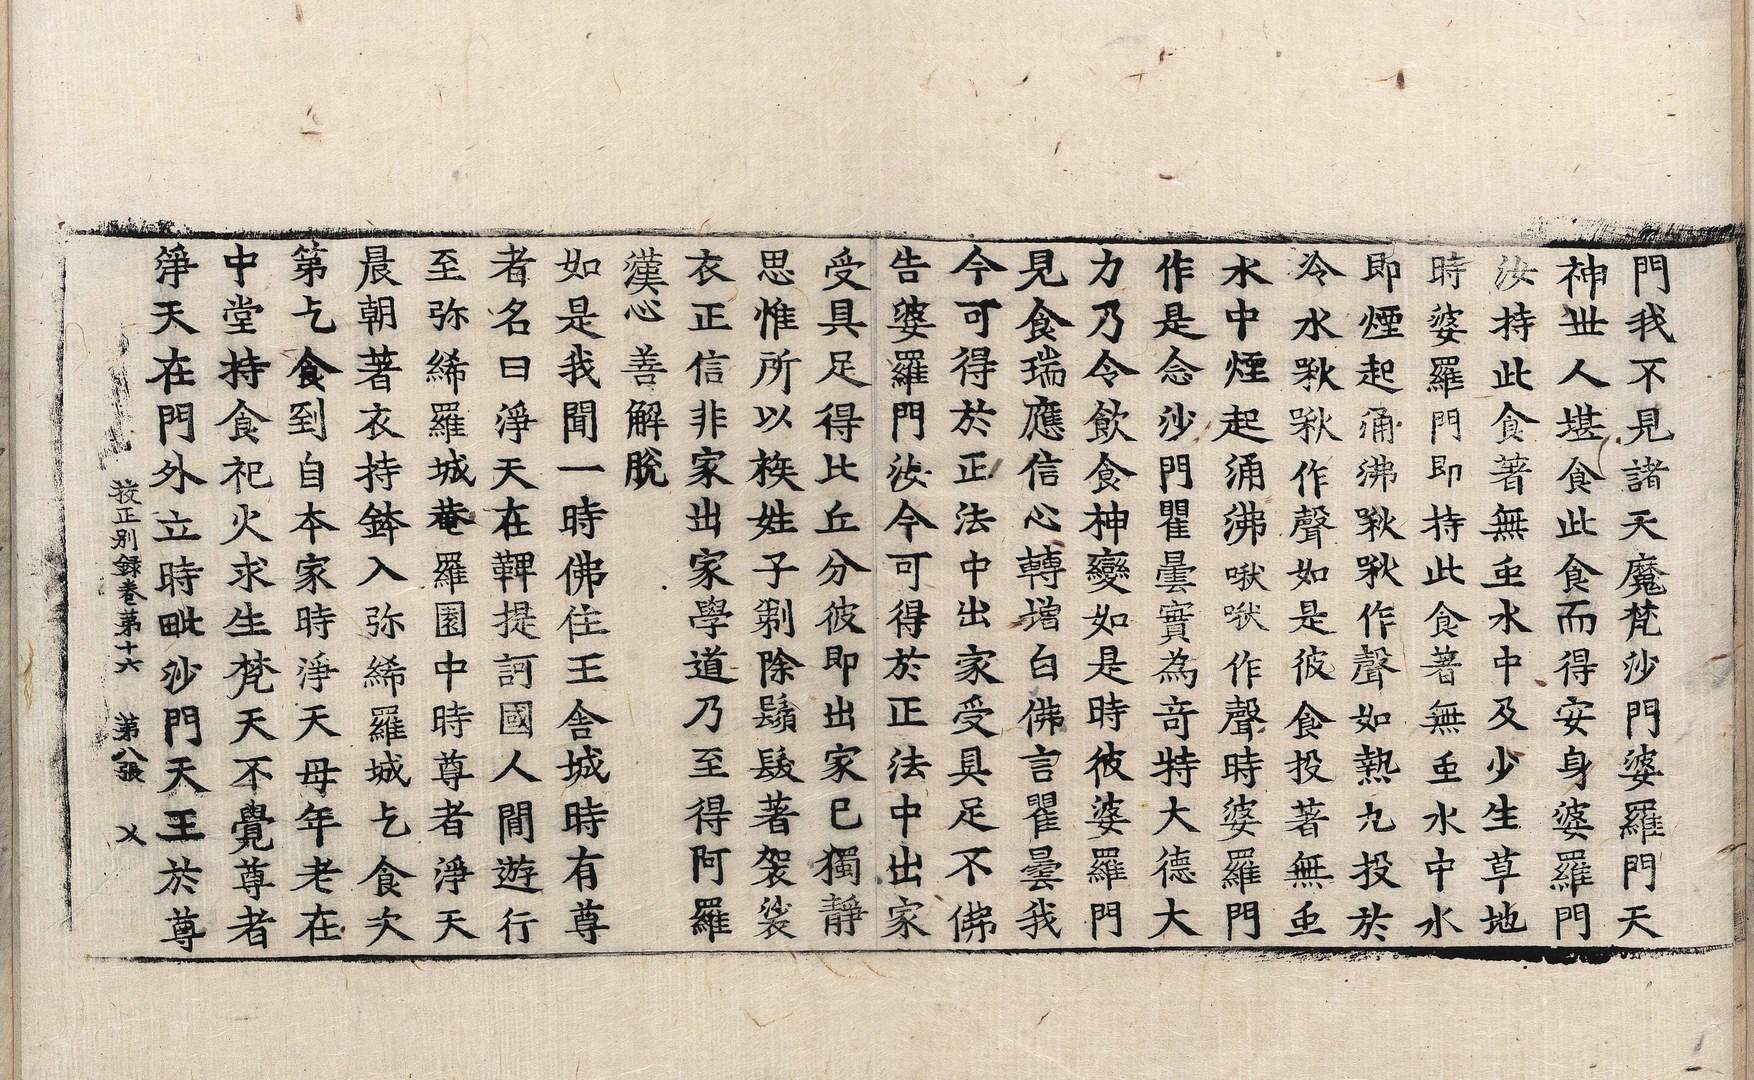 門我不見諸天魔梵沙門婆羅門天
神丗人堪食此食而得安身婆羅門
汝持此食著無䖝水中及少生草地
時婆羅門即持此食著無䖝水中水
即煙起涌沸啾啾作聲如熱丸投於
冷水啾啾作聲如是彼食投著無䖝
水中煙起涌沸啾啾作聲時婆羅門
作是念沙門瞿曇實為竒特大德大
力乃令飲食神變如是時彼婆羅門
見食瑞應信心轉增白佛言瞿曇我
今可得於正法中出家受具足不佛
告婆羅門汝今可得於正法中出家
受具足得比丘分彼即出家已獨靜
思惟所以族姓子剃除鬚髮著袈裟
衣正信非家出家學道乃至得阿羅
漢心善解脫
如是我聞一時佛住王舍城時有尊
者名曰淨天在鞞提訶國人間遊行
至弥絺羅城菴羅園中時尊者淨天
晨朝著衣持鉢入弥絺羅城乞食次
第乞食到自本家時淨天母年老在
中堂持食祀火求生梵天不覺尊者
淨天在門外立時毗沙門天王於尊
挍正别録卷第十六 第八張 㐅